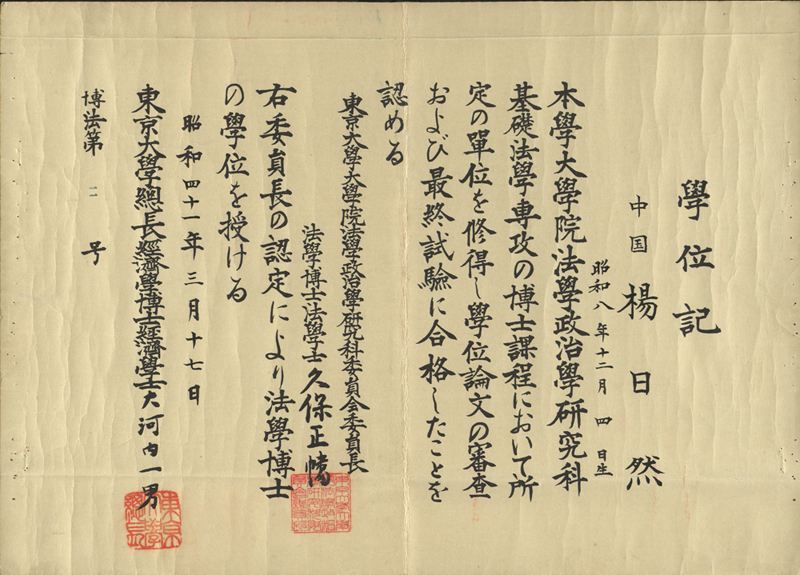 學位記
中国 楊日然
昭和八年十二月四日生
本學大學院法學政治學研究科
基礎法學専攻の博士課程において所
定の單位を修得し學位論文の審査
および最終試驗に合格したことを
認める
東京大學大學院法學政治學研究科委員会委員長
法學博士法學士 久保正幡
右委員長の認定により法學博士
の學位を授ける
昭和四十一年三月十七日
東京大學總長經濟學博士經濟學士大河内一男
博法第 二 号